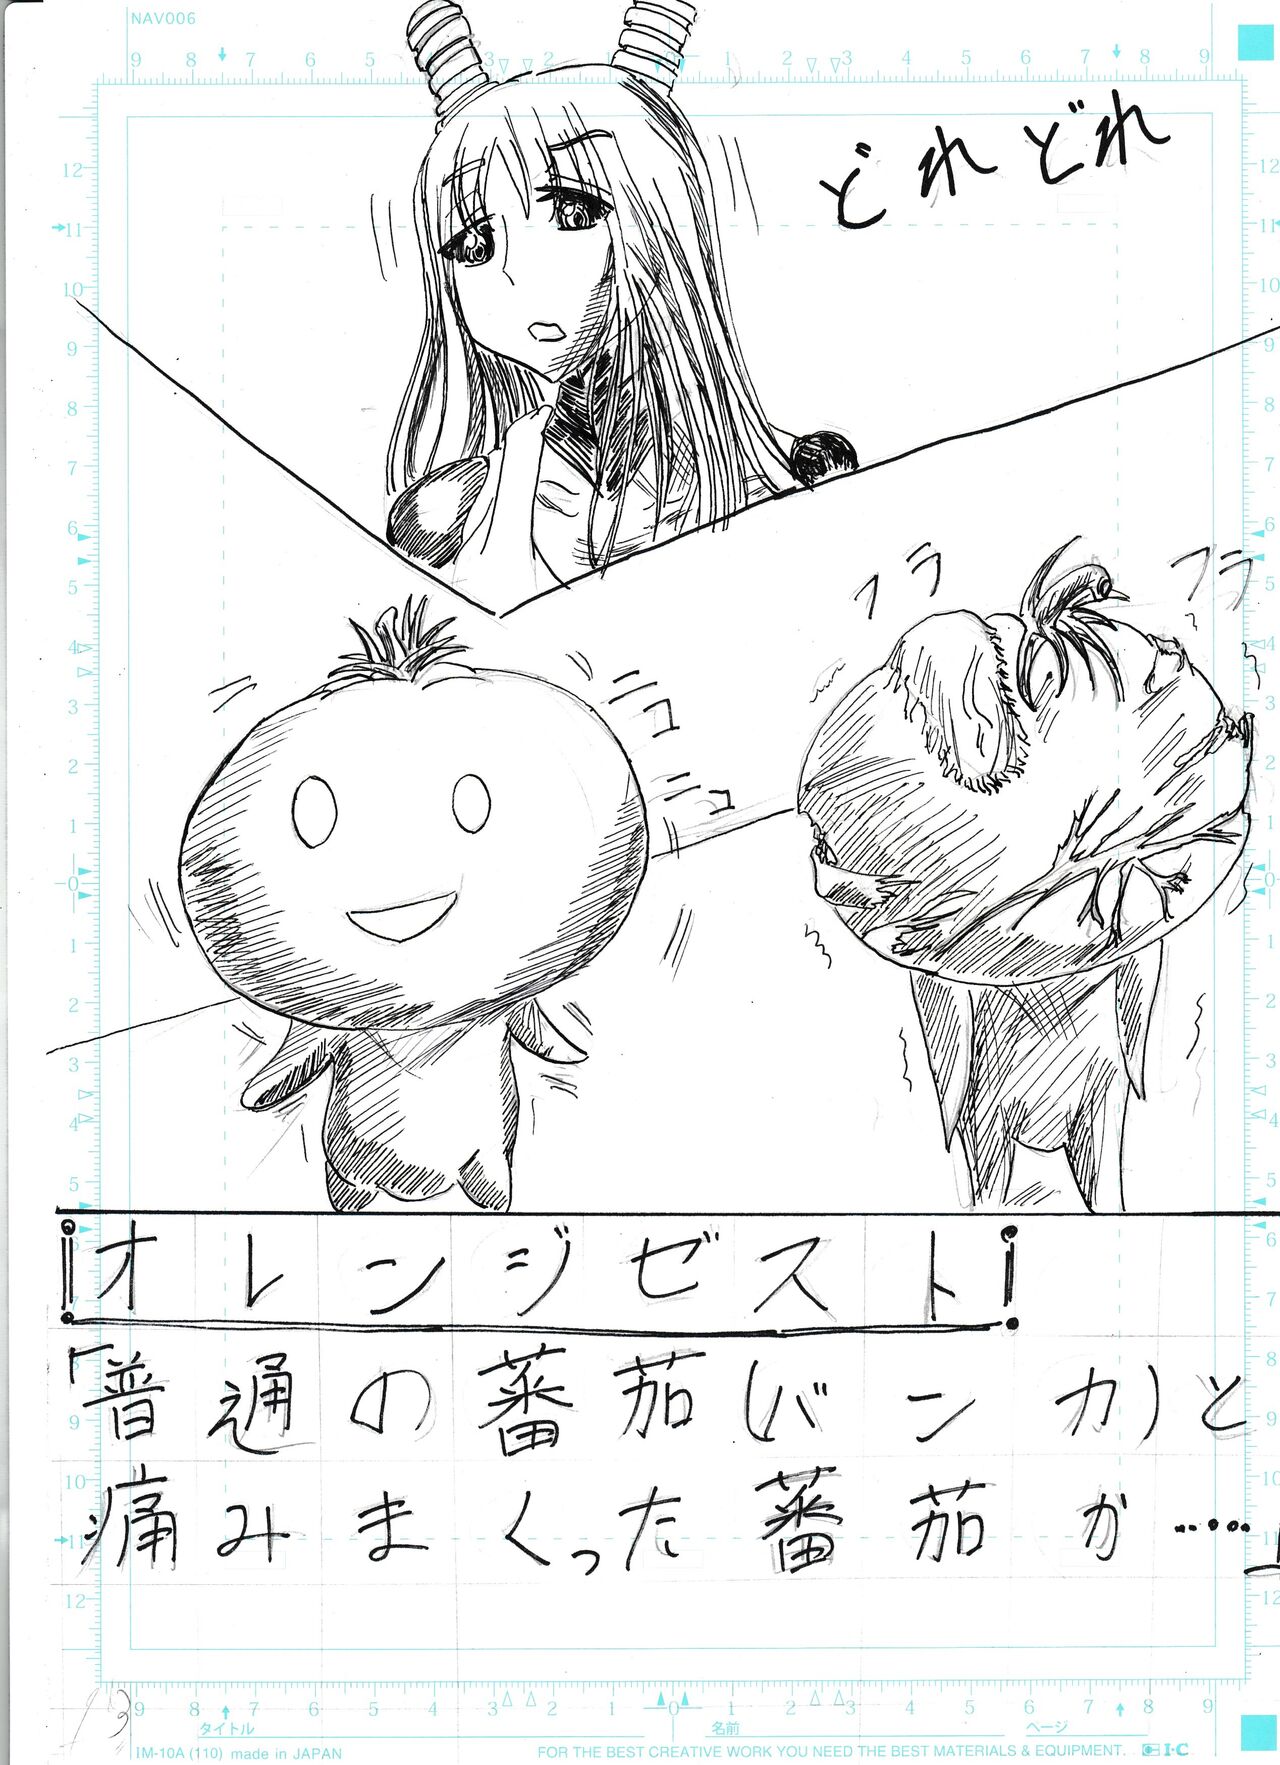 NAV006
どれどれ
フラ
フラ
ニュ
ニュ
¡オレンジゼスト!
「普通の蕃茄(バンカ)と
痛みまくった蕃茄が……」
13
タイトル
名前
ページ
IM-10A (110) made in JAPAN
FOR THE BEST CREATIVE WORK YOU NEED THE BEST MATERIALS & EQUIPMENT.
I·C